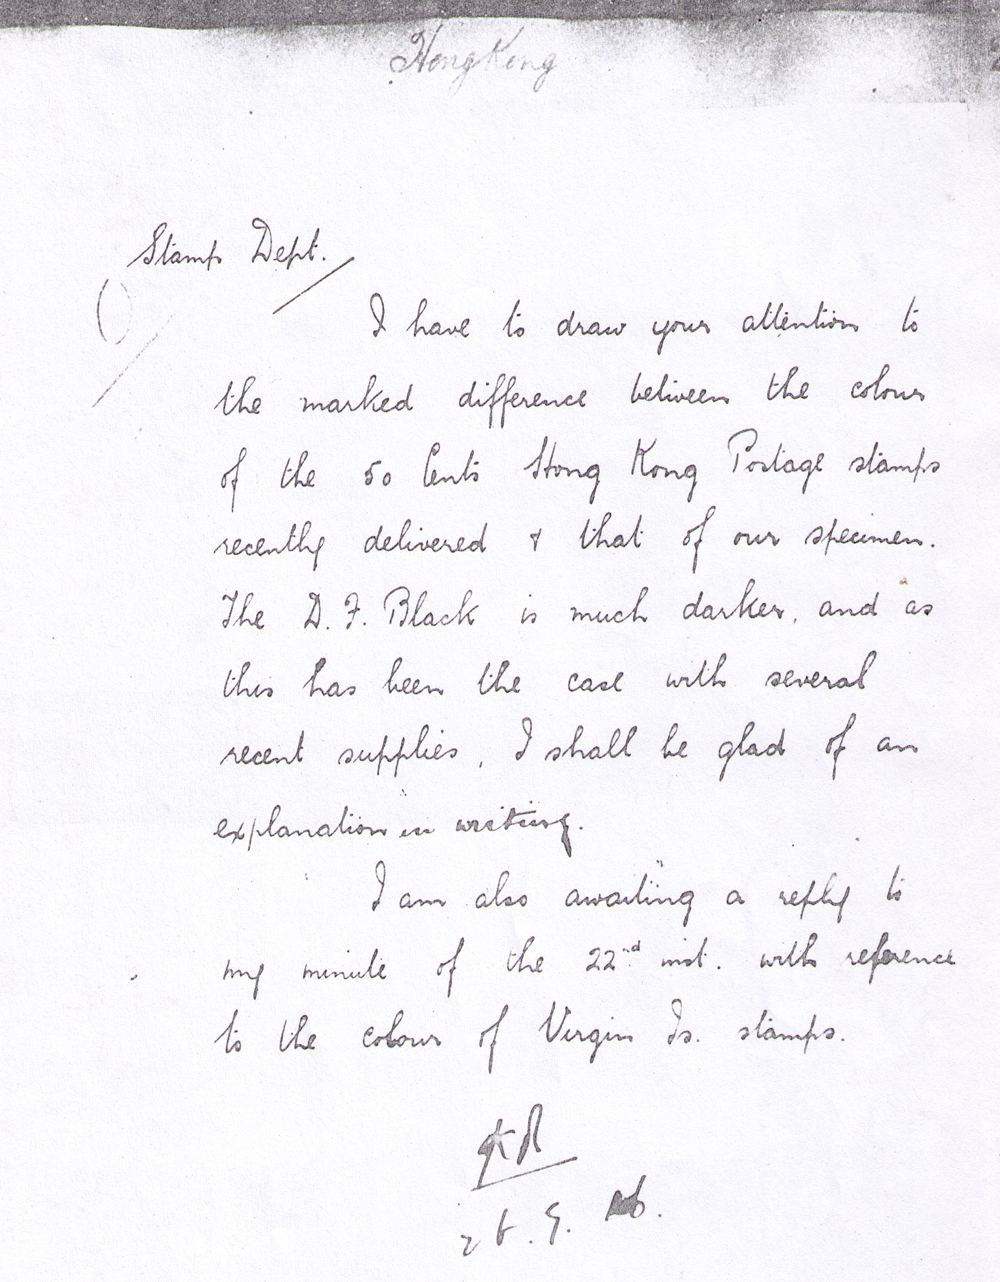 Hong Kong
Stamp Dept.
I have to draw your attention to
the marked difference between the colour
of the 50 Cents Hong Kong Postage stamps
recently delivered & that of our specimen.
The D. F. Black is much darker, and as
this has been the case with several
recent supplies, I shall be glad of an
explanation in writing.
I am also awaiting a reply to
my minute of the 22nd inst. with reference
to the colour of Virgin Is. stamps.